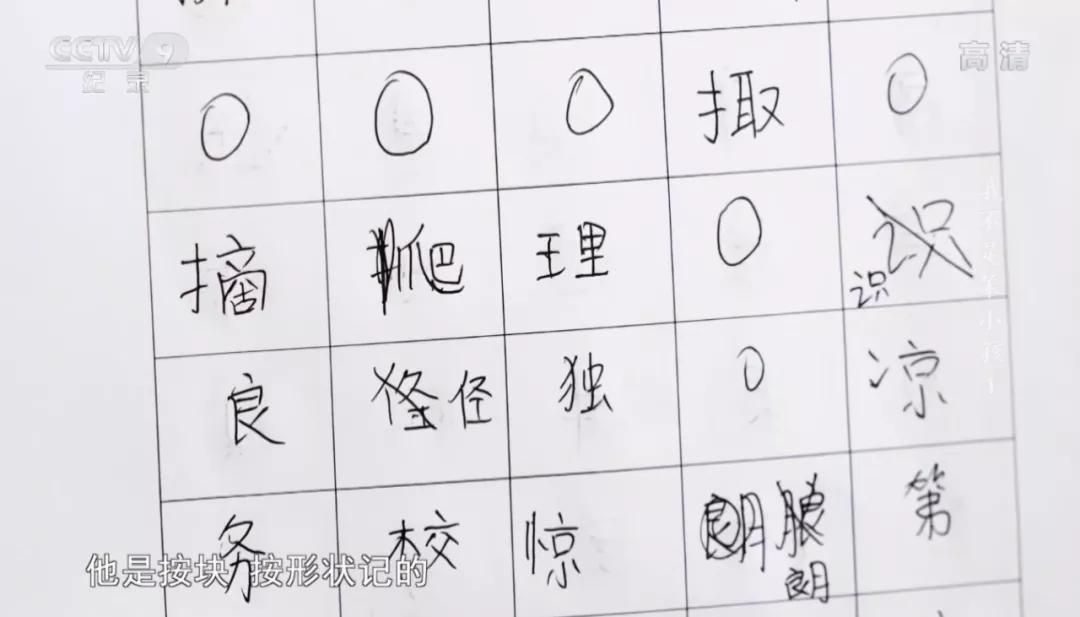 CCTV 9 高清
纪录
O O O 掫 O
摘 爬 理 O 识
识
良 径 独 O 凉
务 校 惊 第
朗
我不是笨小孩 1
他是按块 按形状记的